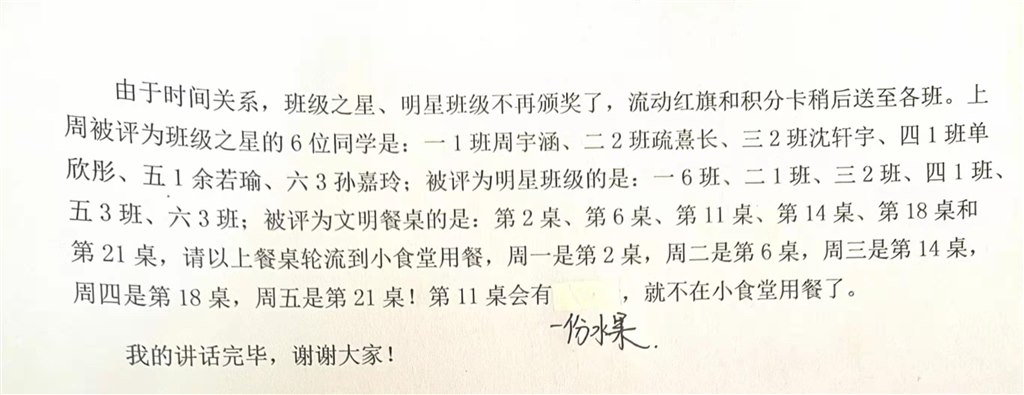 由于时间关系，班级之星、明星班级不再颁奖了，流动红旗和积分卡稍后送至各班。上
周被评为班级之星的6位同学是：一1班周宇涵、二2班疏熹长、三2班沈轩宇、四1班单
欣彤、五1余若瑜、六3孙嘉玲；被评为明星班级的是：一6班、二1班、三2班、四1班、
五3班、六3班；被评为文明餐桌的是：第2桌、第6桌、第11桌、第14桌、第18桌和
第21桌，请以上餐桌轮流到小食堂用餐，周一是第2桌，周二是第6桌，周三是第14桌，
周四是第18桌，周五是第21桌！第11桌会有　　　，就不在小食堂用餐了。
一份水果.
我的讲话完毕，谢谢大家！